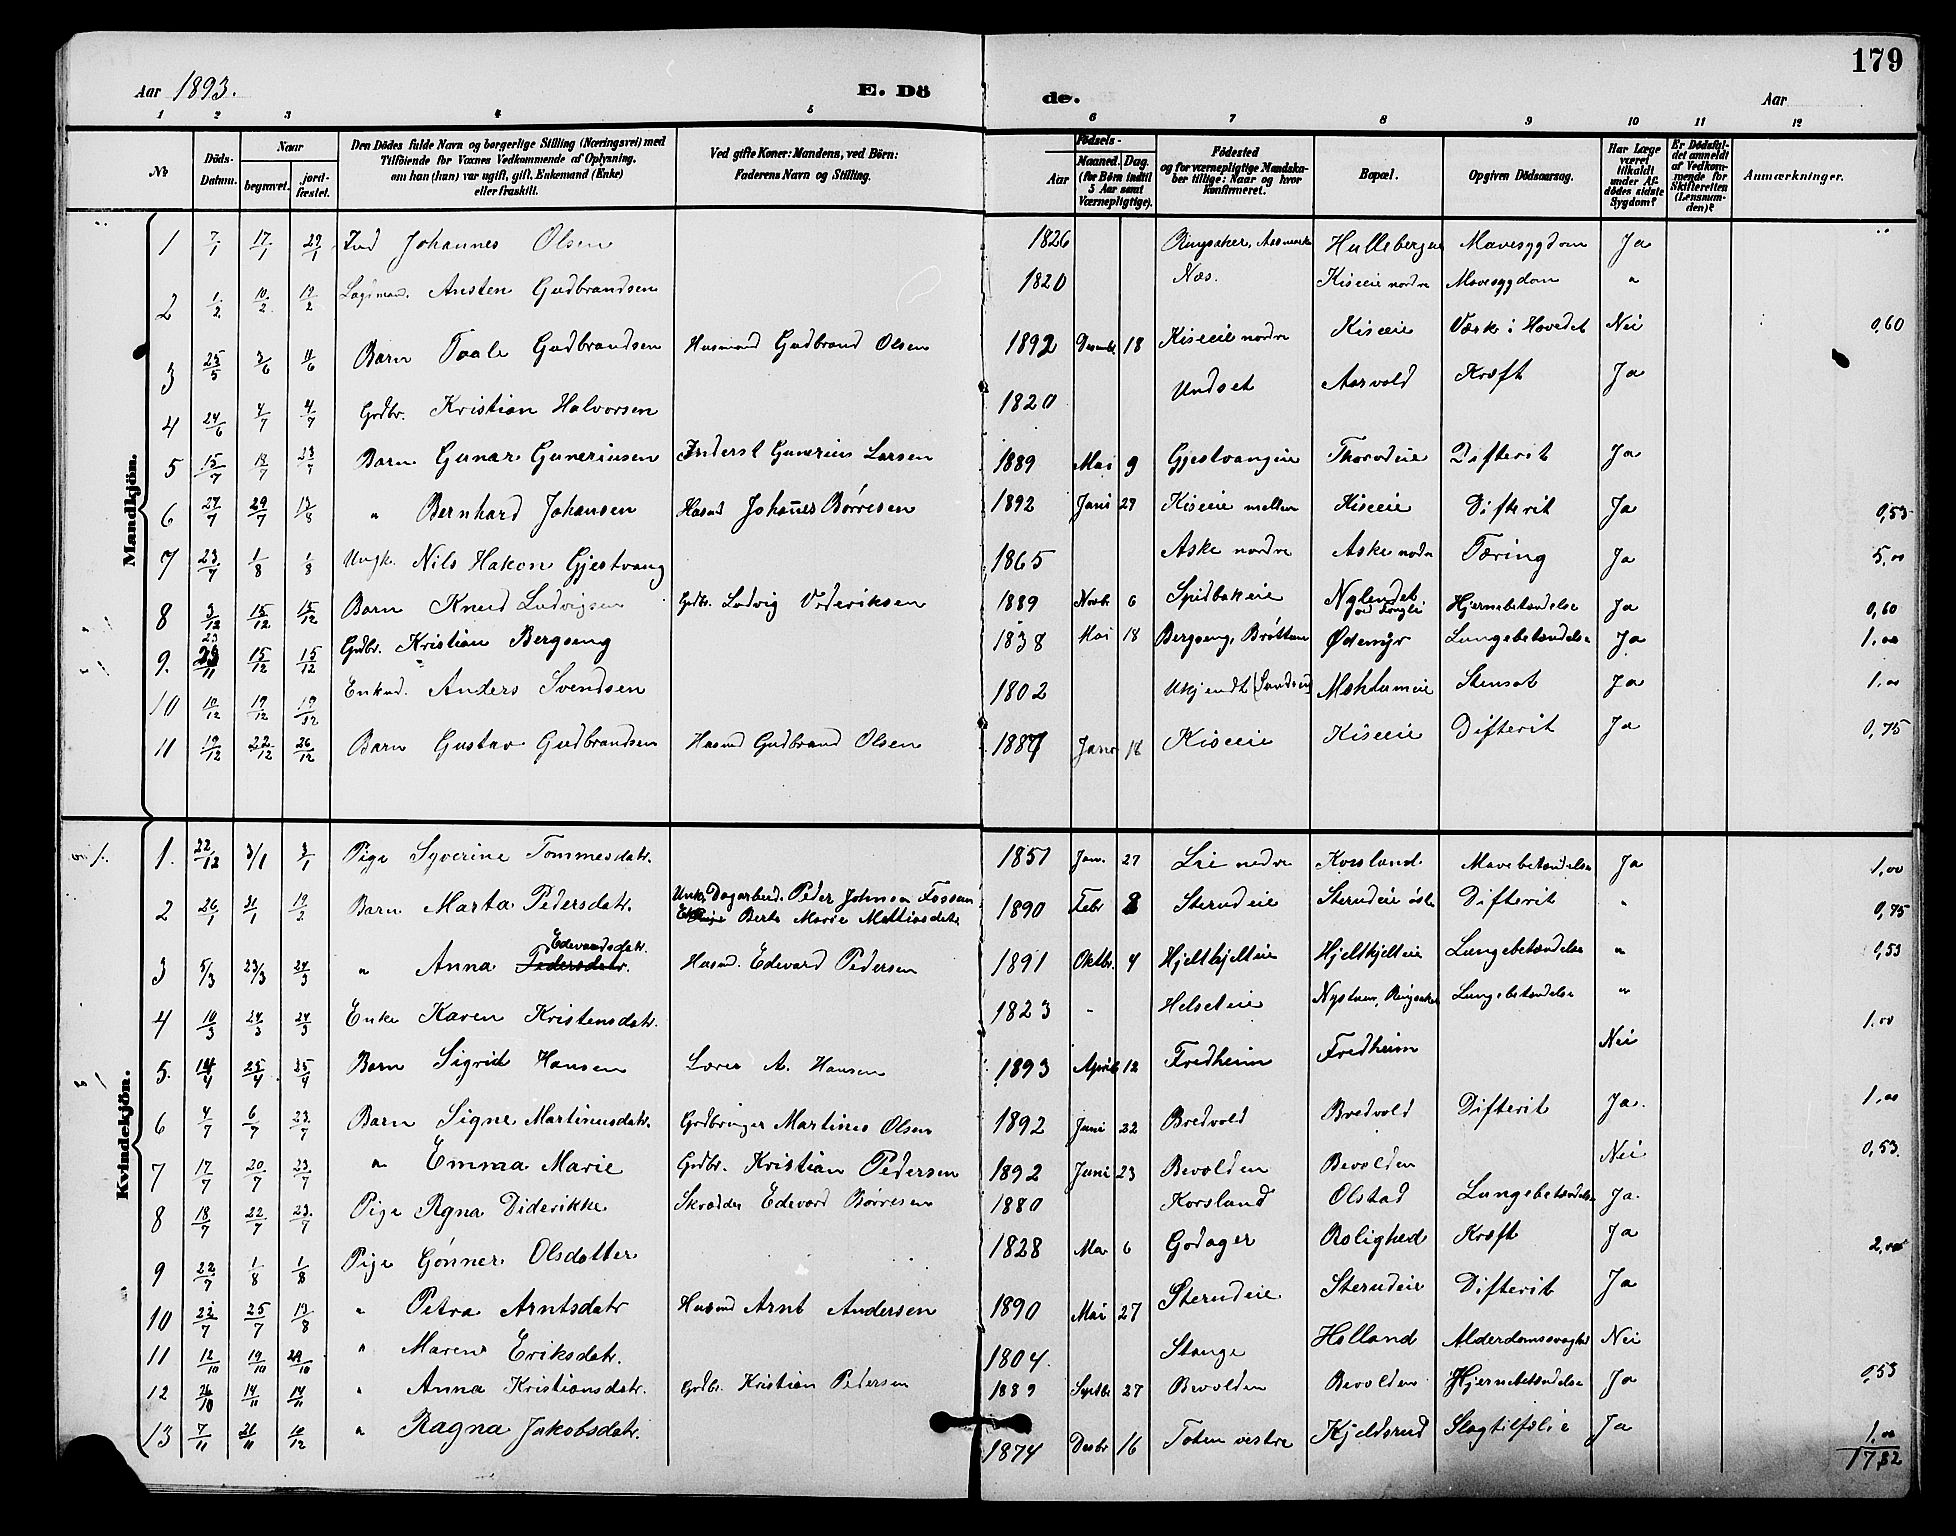 179
Aar 1893. E. Dö de. Aar
1 2 3 4 5 6 7 8 9 10 11 12
No
Döds-Datum.
Naar
begravet.
jord-fæstet.
Den Dödes fulde Navn og borgerlige Stilling (Næringsvei) med
Tilföiende for Voxnes Vedkommende af Oplysning,
om han (hun) var ugift, gift, Enkemand (Enke)
eller fraskilt.
Ved gifte Koner: Mandens, ved Börn:
Faderens Navn og Stilling.
Födsels-
Aar
Maaned. Dag.
(for Börn indtil
5 Aar samt
Værnepligtige).
Födested
og for værnepligtige Mandska-
ber tillige: Naar og hvor
konfirmeret.
Bopæl.
Opgiven Dödsaarsag.
Har Læge
været
tilkaldt
under Af-
dödes sidste
Sygdom?
Er Dödsfal-
det anmeldt
af Vedkom-
mende for
Skifteretten
(Lensman-
den)?
Anmærkninger.
Mandkjön.
1 7/1 17/1 29/1 Ind Johannes Olsen 1826 Ringsaker, Hullebergeie Mavesygdom Ja
2 1/2 10/2 19/2 Lagsmand. Ansten Gudbrandsen 1820 Næs. Kiseeie nordre Mavesygdom "
3 25/5 3/6 11/6 Barn Taale Gudbrandsen Husmand Gudbrand Olsen 1892 Decembr 18 Kiseeie nordre Kiseeie Værk i Hovedet Nei 0,60
4 24/6 4/7 4/7 Grdbr. Kristian Halvorsen 1820 Undset Aasvold Kræft Ja
5 15/7 18/7 23/7 Barn Gunar Guneriusen Inderst Gunerius Larsen 1889 Mai 9 Gjestvangeie Thorudeie Difterit Ja
6 27/7 29/7 13/8 " Bernhard Johansen Husmd Johannes Børresen 1892 Juni 27 Kiseeie mellem Kiseeie Difterit Ja 0,53
7 23/7 1/8 1/8 Ungk. Nils Hakon Gjestvang 1865 Aske nordre Aske nodre Tæring Ja 5,00
8 3/12 15/12 15/12 Barn Knud Ludvigsen Grdbr. Ludvig Vderiksen 1889 Novbr 6 Spidbakeie Nylendet Hjernebetændelse Ja 0,60
9. 23/11 15/12 15/12 Grdbr. Kristian Bergseng 1838 Mai 18 Bergseng, Brøttum Ødemyr Lungebetændelse Ja 1.00
10 10/12 19/12 19/12 Enkmd. Anders Svendsen 1802 Ukjendt Mehlumeie Stensot Ja 1.00
11 19/12 22/12 26/12 Barn Gustav Gudbrandsen Husmd Gudbrand Olsen 1887 Janr 18 Kiseeie Kiseeie Difterit Ja 0,75
Kvindekjön.
1. 22/12 3/1 3/1 Pige Syverine Tommesdatr. 1851 Jan. 27 Lie nedre Korsland Mavebetændelse Ja 1.00
2 26/1 31/1 19/2 Barn Marta Pedersdatr. Unkr. Dagarbeid. Peder Johnsen Fossum
Pige Berte Marie Mattiasdatr. 1890 Febr 8 Sterudeie Sterudeie østre Difterit " 0,75
Edevardsdatr.
3 5/3 23/3 24/3 " Anna Pedersdatr. Husmd. Edevard Pedersen 1891 Oktbr. 4 Hjeltkjelteie Hjeltkjelteie Lungebetændelse " 0,53
4 10/3 24/3 24/3 Enke Karen Kristensdatr. 1823 - Helseteie Nystuen, Ringsaker Lungebetændelse " 1.00
5. 14/4 25/4 25/4 Barn Sigrid Hansen Lærer A. Hansen 1893 April 12 Fredheim Fredheim Nei
6 4/7 6/7 23/7 Barn Signe Martinusdatr. Grdbruger Martines Olsen 1892 Juni 22 Bredvold Bredvold Difterit Ja. 1.00
7 17/7 20/7 23/7 " Emma Marie Grdbr. Kristian Pedersen 1892 Juni 23 Bevolden Bevolden Nei 0,53.
8 18/7 22/7 23/7 Pige Agna Diderikke Skrædder Edevard Børresen 1880 Korsland Olstad Lungebetændelse Ja.
9 22/7 1/8 1/8 Pige Gønner Olsdatter 1828 Mai 6 Godager Rolighed Kræft Ja 2,00
10 22/7 25/7 13/8 " Petra Arntsdatr Husmd Arnt Andersen 1890 Mai 27 Sterudeie Sterudeie Difterit Ja
11 12/10 19/10 29/10 " Maren Eriksdatr. 1804. Stange Holland Alderdomssvaghed Nei
12 26/10 14/11 14/11 " Anna Kristiansdatr. Grdbr. Kristian Pedersen 1889 Septbr 27 Bevolden Bevolden Hjernebetændelse Ja 0,53
13 7/11 21/11 10/12 " Ragna Jakobsdatr. 1874 Decbr 16 Toten vestre Kjeldsrud Slagtilfælde Ja 1.00
17,82